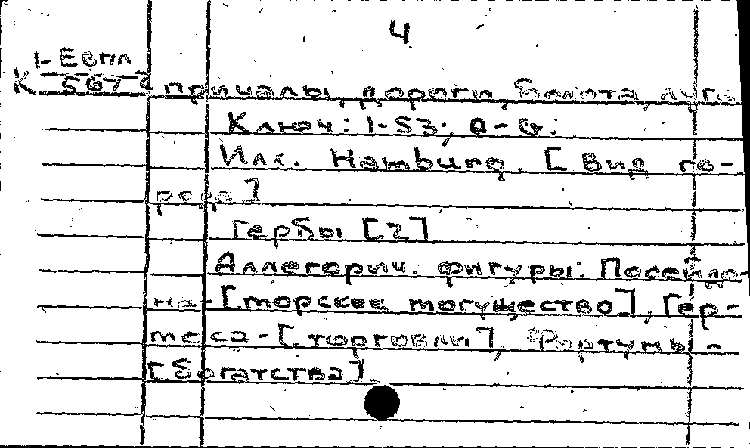 4
1-Евпл
К 5672 причалы, дороги, болота, луга
Ключ: 1-53; a-G.
Илл. Hamburg. [Вид го-
рода]
Гербы [2]
Аллегорич. фигуры: Посейдо-
на-[морское могущество], Гер-
меса-[торговли], Фортуны-
[богатства]